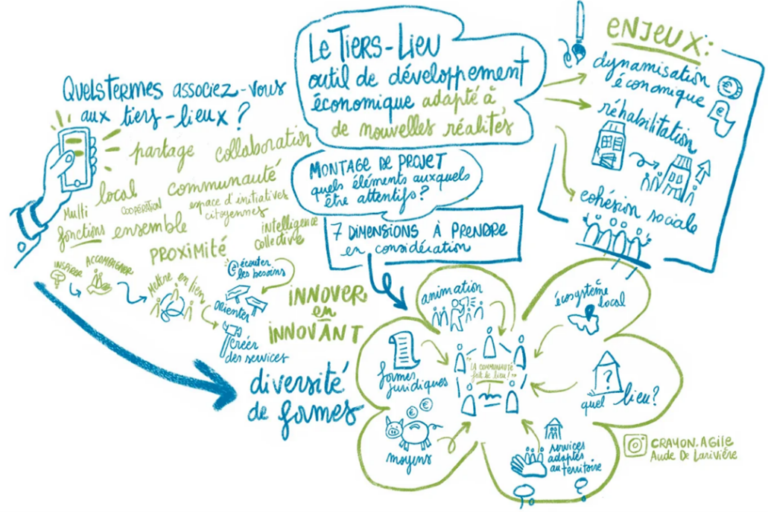 Quels termes associez-vous
aux tiers-lieux ?
partage
collaboration
local
communauté
Multi
fonctions
coopération
espace d'initiatives
citoyennes
ensemble
intelligence
collective
PROXIMITÉ
INSPIRER
ACCOMPAGNER
Mettre en lien
écouter
les besoins
Orienter
Créer
des services
INNOVER
en
INNOVANT
diversité
de formes
Le Tiers-Lieu
outil de développement
économique adapté à
de nouvelles réalités
MONTAGE DE PROJET
quels éléments auxquels
être attentifs ?
7 DIMENSIONS À PRENDRE
en considération
ENJEUX :
dynamisation
économique
réhabilitation
cohésion sociale
animation
écosystème
local
formes
juridiques
"LA COMMUNAUTÉ
fait le lieu !"
?
quel lieu ?
moyens
services
adaptés
au territoire
CRAYON.AGILE
Aude De Larivière